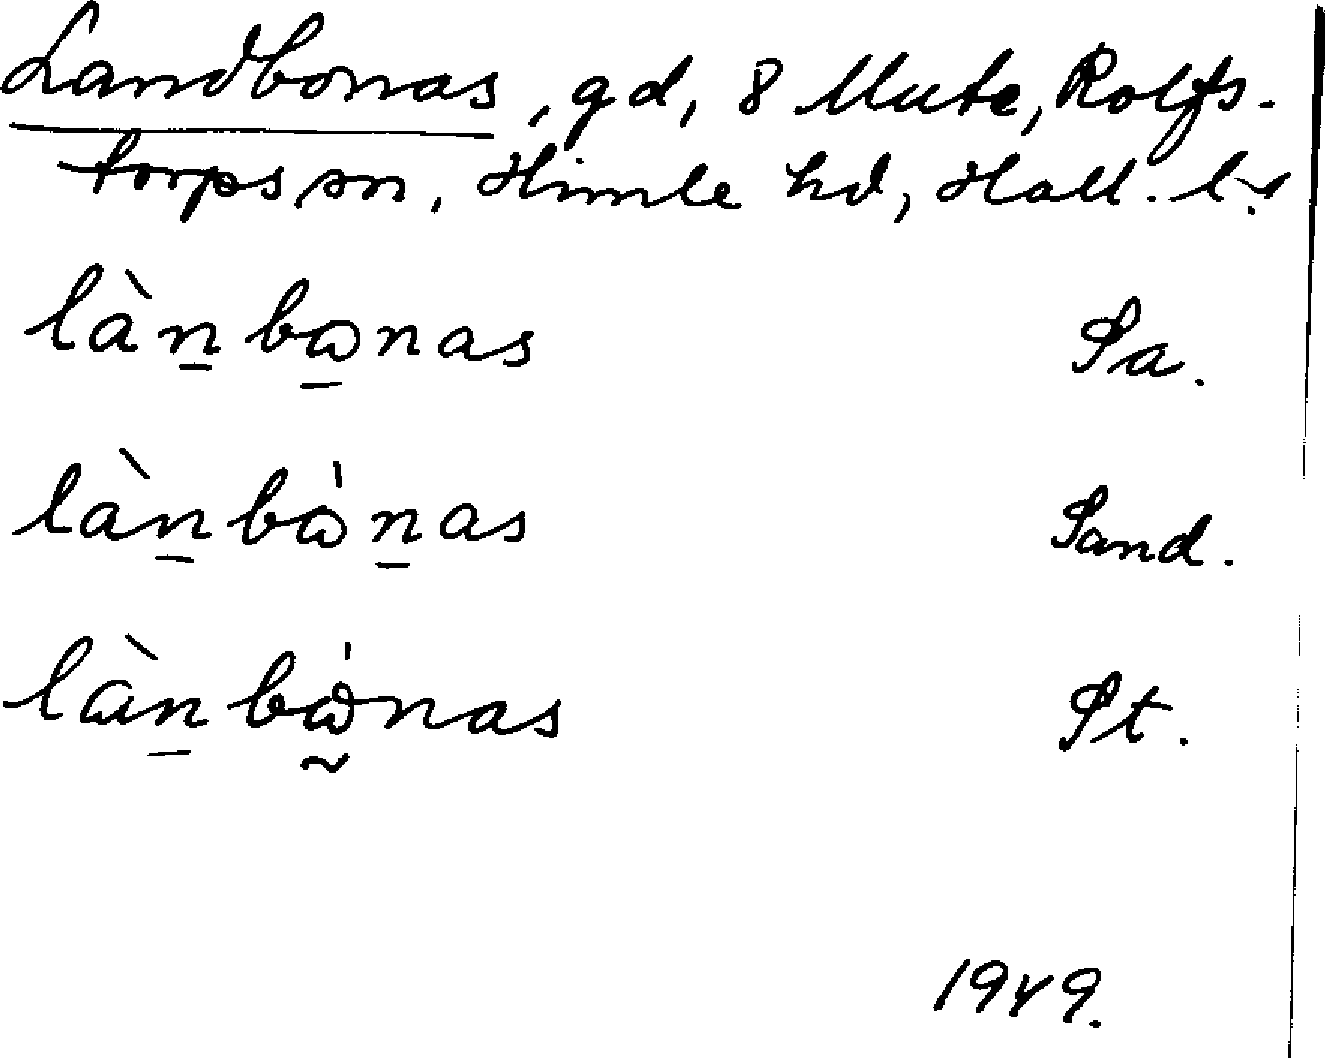 Landbonas, gd, 8 Mute, Rolfs-
torps sn, Himle hd, Hall. l.
làn̲bɷ̲nas Sa.
làn̲bɷ̍n̲as Sand.
làn̲bɷ̰̍nas St.
1949.